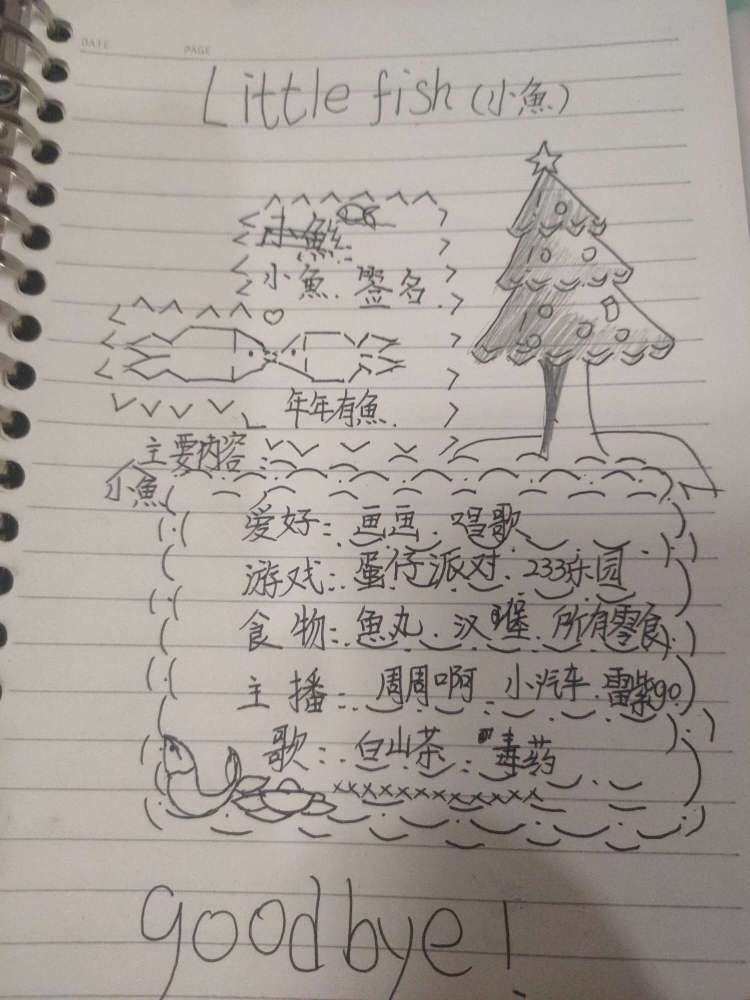 DATE PAGE
Little fish (小魚)
小鮏
小魚.签名
年年有魚.
主要内容:
小魚
爱好:画画.唱歌
游戏:蛋仔派对.233乐园
食物:魚丸.汉堡.所有零食.
主播:周周啊.小汽车.雷紫go.
歌:白山茶.毒药
××××××××××××××××
goodbye!